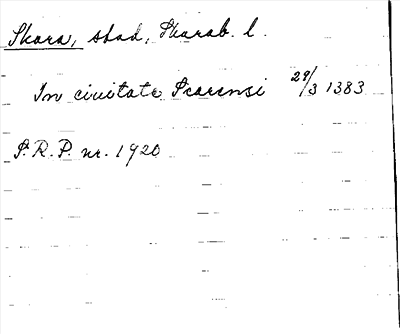 Skara, stad, Skarab. l.
In ciuitate Scarensi 29/3 1383
S.R.P. nr. 1920